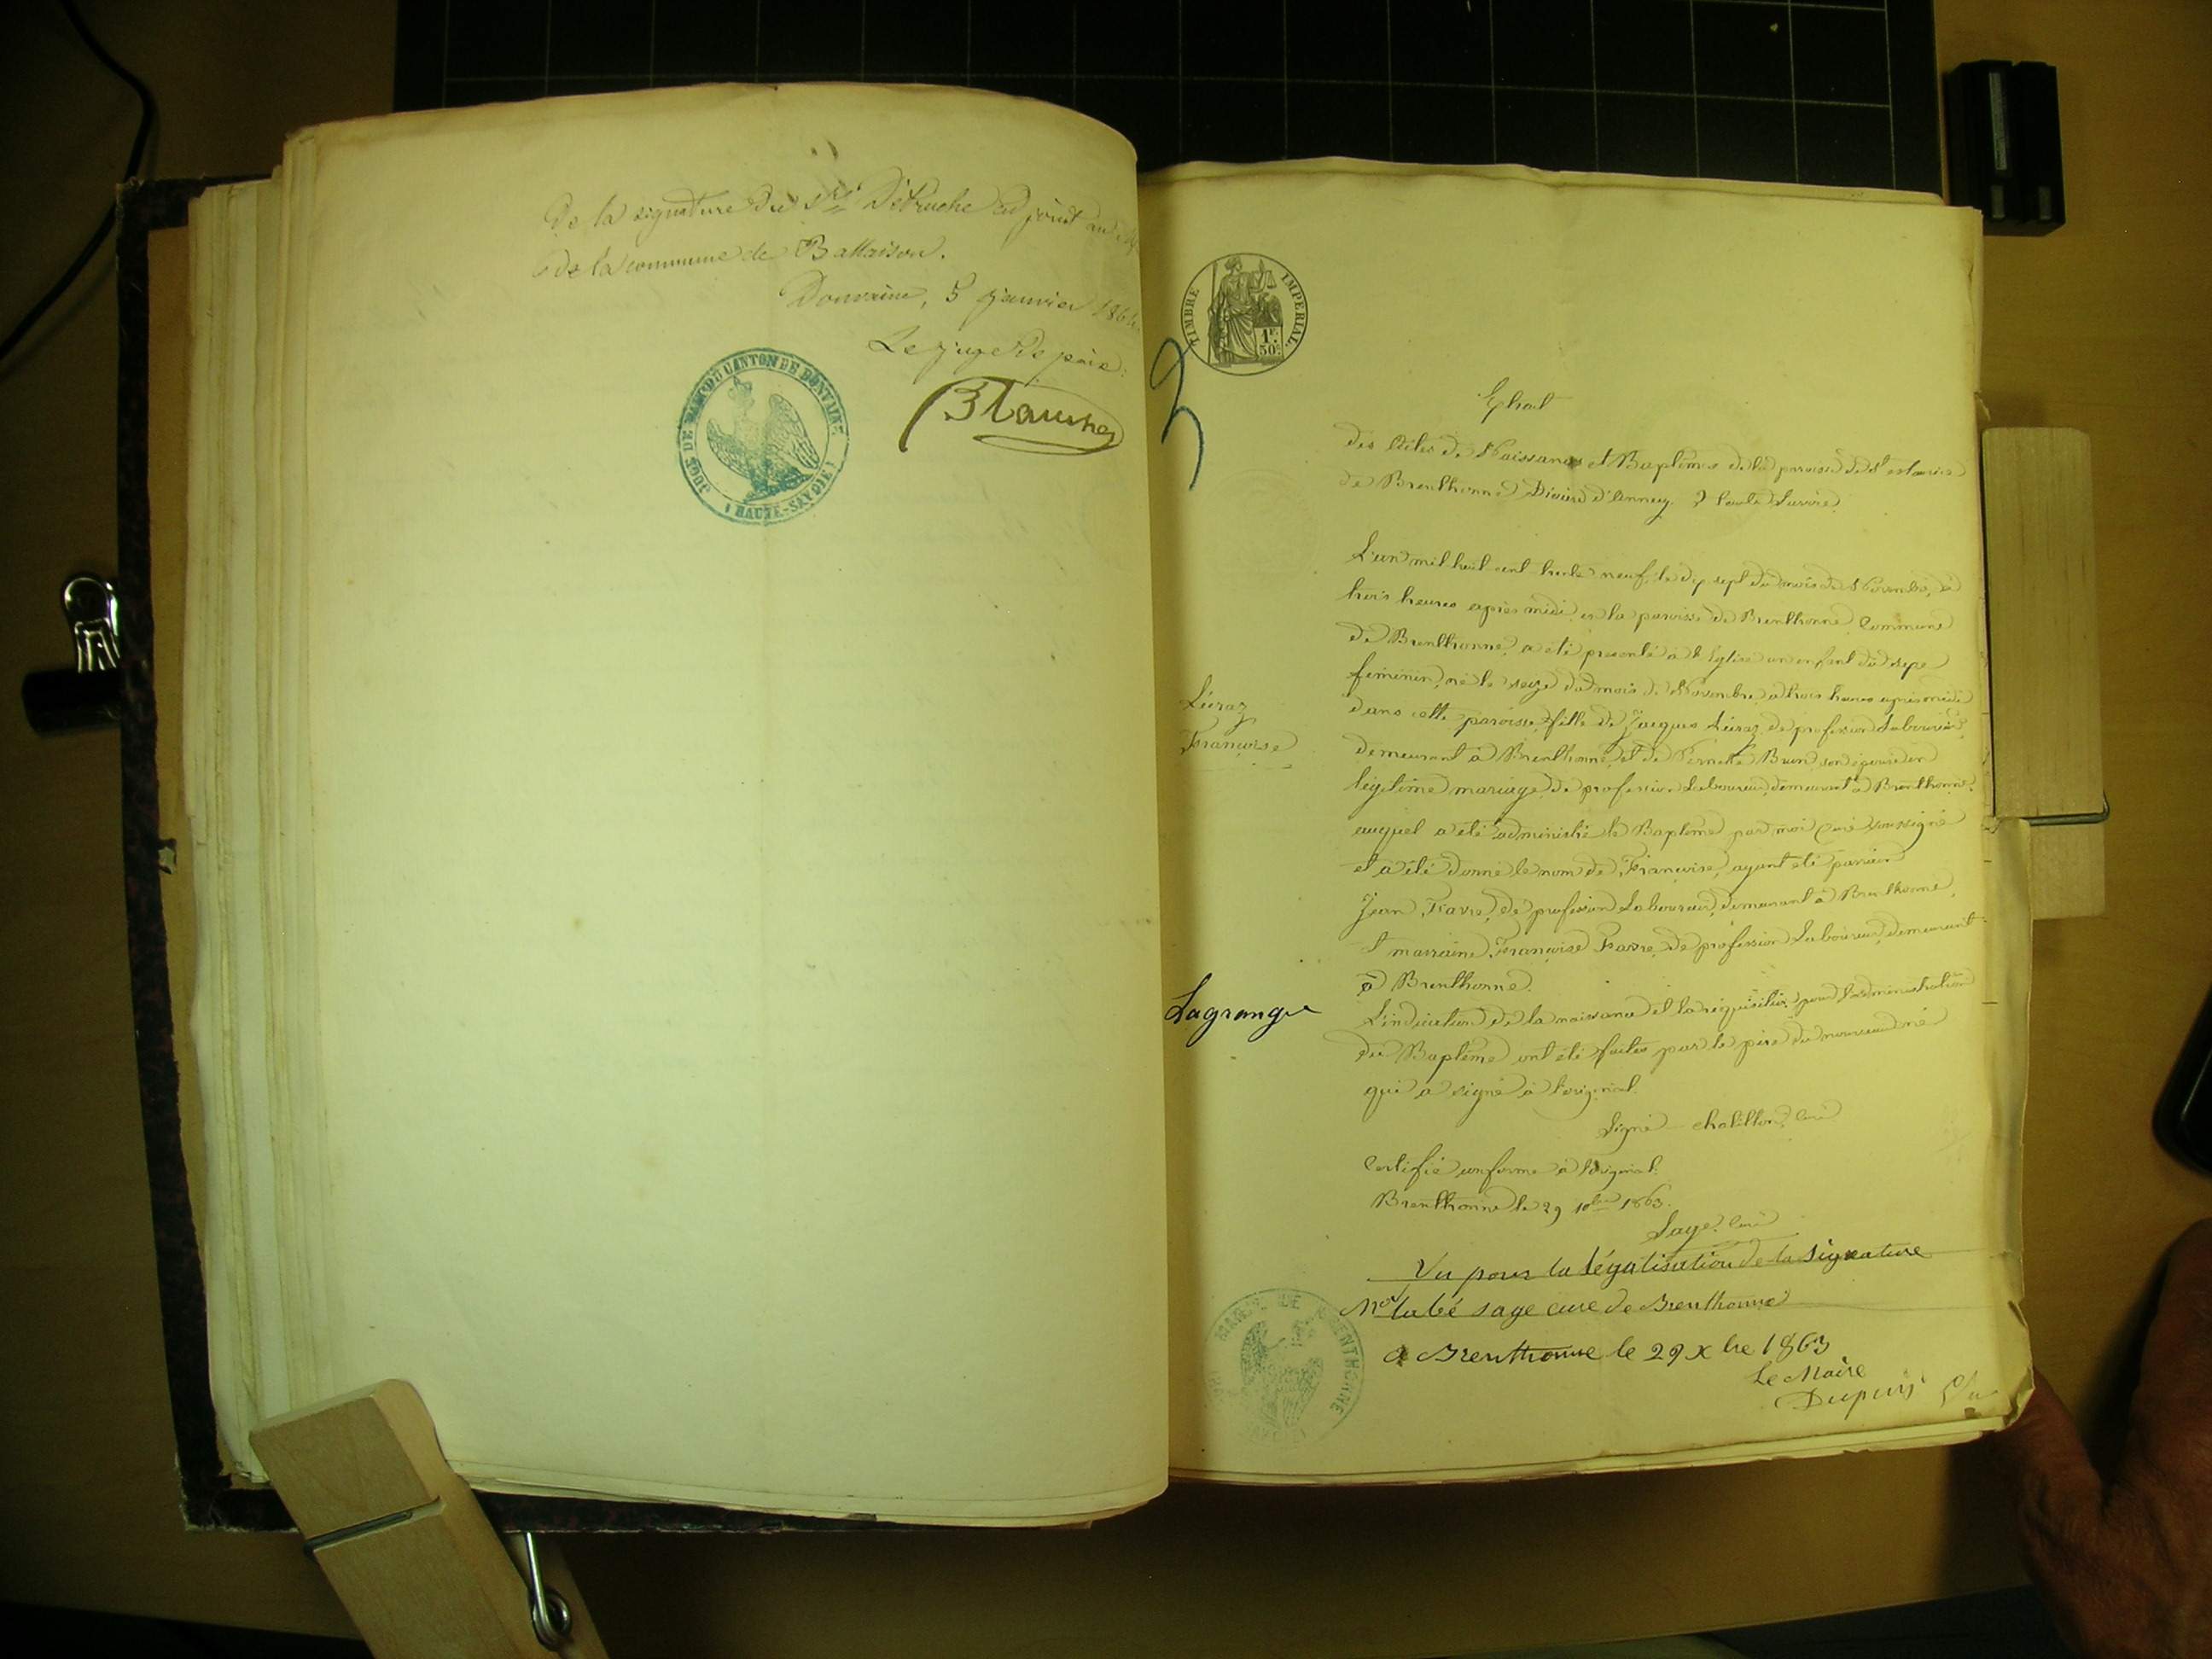 De la signature du Sr Détruche adjoint au
de la commune de Ballaison.
Douvaine, 5 janvier 1864
Le juge de paix:
JUGE DE PAIX DU CANTON DE DOUVAINE
(HAUTE-SAVOIE)
TIMBRE IMPERIAL
1F. 50c
3
Extrait
des Actes de Naissances et Baptêmes de la paroisse de
de Brenthonne Diocèse d'Annecy. Haute Savoie
L'an mil huit cent trente neuf, le dix sept du mois de Novembre, à
trois heures après midi en la paroisse de Brenthonne Commune
de Brenthonne, a été présenté à l'Eglise un enfant du sexe
féminin, né le seize du mois de Novembre, à trois heures après midi
dans cette paroisse, fille de Jacques Léraz, de profession Laboureur,
demeurant à Brenthonne, et de Pernette Brun, son épouse en
légitime mariage, de profession Laboureur, demeurant à Brenthonne,
auquel a été administré le Baptême par moi Curé soussigné
et a été donné le nom de Françoise, ayant été parrain
Jean Favre, de profession Laboureur, demeurant à Brenthonne,
et marraine Françoise Favre, de profession Laboureur, demeurant
à Brenthonne.
L'indication de la naissance et la réquisition pour l'administration
du Baptême ont été faites par le père du nouveau né
qui a signé à l'original.
Signé Chatillon, Curé
Certifié conforme à l'original.
Brenthonne le 29 10bre 1863.
Sage Curé
Léraz
Françoise
Lagrange
Vu pour la légalisation de la signature
Mr l'abé sage curé de Brenthonne
a Brenthonne le 29 xbre 1863
Le Maire
Dupuis
MAIRIE DE BRENTHONNE